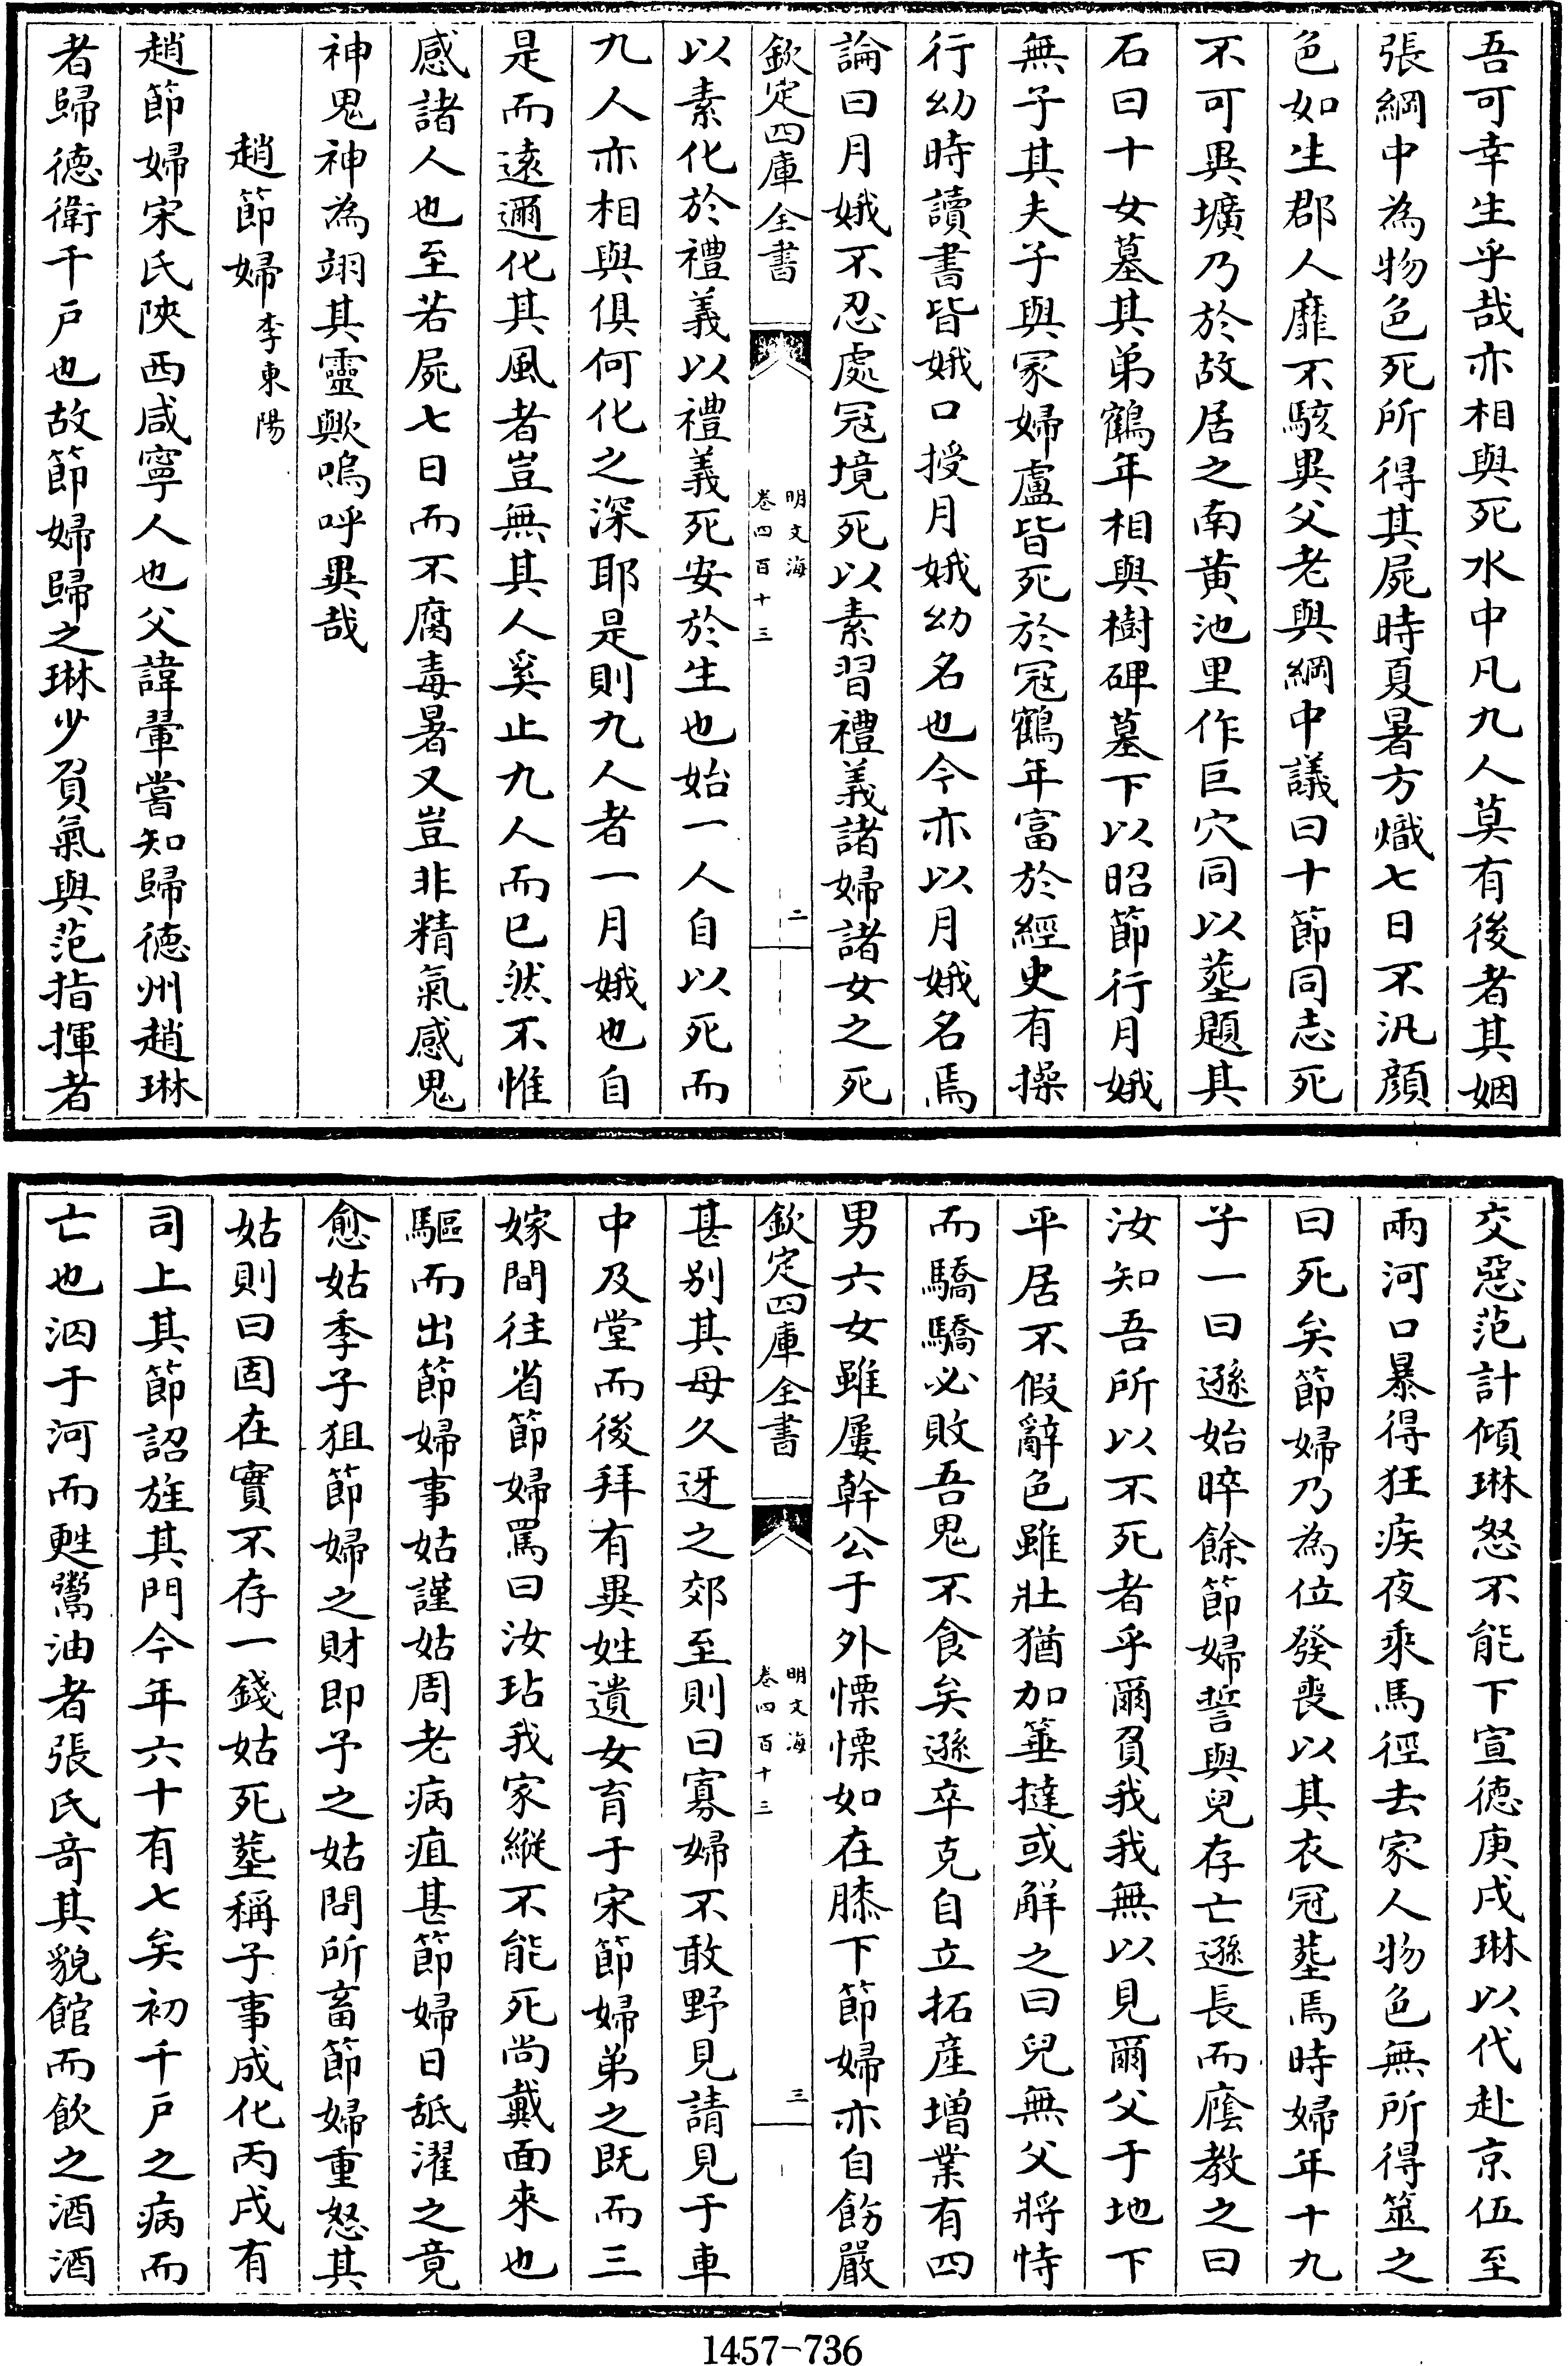 吾可幸生乎哉亦相與死水中凡九人莫有後者其姻
張綱中為物色死所得其屍時夏暑方熾七日不汎顔
色如生郡人靡不駭異父老與綱中議曰十節同志死
不可異壙乃於故居之南黄池里作巨穴同以塟題其
石曰十女墓其弟鶴年相與樹碑墓下以昭節行月娥
無子其夫子與冢婦盧皆死於冦鶴年富於經史有操
行幼時讀書皆娥口授月娥幼名也今亦以月娥名焉
論曰月娥不忍處冦境死以素習禮義諸婦諸女之死
欽定四庫全書
明文海
卷四百十三
二
以素化於禮義以禮義死安於生也始一人自以死而
九人亦相與俱何化之深耶是則九人者一月娥也自
是而遠邇化其風者豈無其人奚止九人而已然不惟
感諸人也至若屍七日而不腐毒暑又豈非精氣感鬼
神鬼神為翊其靈歟嗚呼異哉
趙節婦李東陽
趙節婦宋氏陝西咸寧人也父諱暈嘗知歸德州趙琳
者歸德衛千戶也故節婦歸之琳少負氣與范指揮者
交惡范計傾琳怒不能下宣德庚戌琳以代赴京伍至
兩河口暴得狂疾夜乘馬徑去家人物色無所得筮之
曰死矣節婦乃為位發喪以其衣冠塟焉時婦年十九
子一曰遜始晬餘節婦誓與兒存亡遜長而廕教之曰
汝知吾所以不死者乎爾負我我無以見爾父于地下
平居不假辭色雖壯猶加箠撻或解之曰兒無父將恃
而驕驕必敗吾鬼不食矣遜卒克自立拓產增業有四
男六女雖屢幹公于外慄慄如在膝下節婦亦自飭嚴
欽定四庫全書
明文海
卷四百十三
三
甚别其母久迓之郊至則曰寡婦不敢野見請見于車
中及堂而後拜有異姓遺女育于宋節婦弟之既而三
嫁間往省節婦罵曰汝玷我家縱不能死尚戴面來也
驅而出節婦事姑謹姑周老病疽甚節婦日䑛濯之竟
愈姑季子狙節婦之財即予之姑問所畜節婦重怒其
姑則曰固在實不存一錢姑死塟稱子事成化丙戌有
司上其節詔旌其門今年六十有七矣初千戶之病而
亡也泅于河而甦鬻油者張氏奇其貌館而飲之酒酒
1457-736